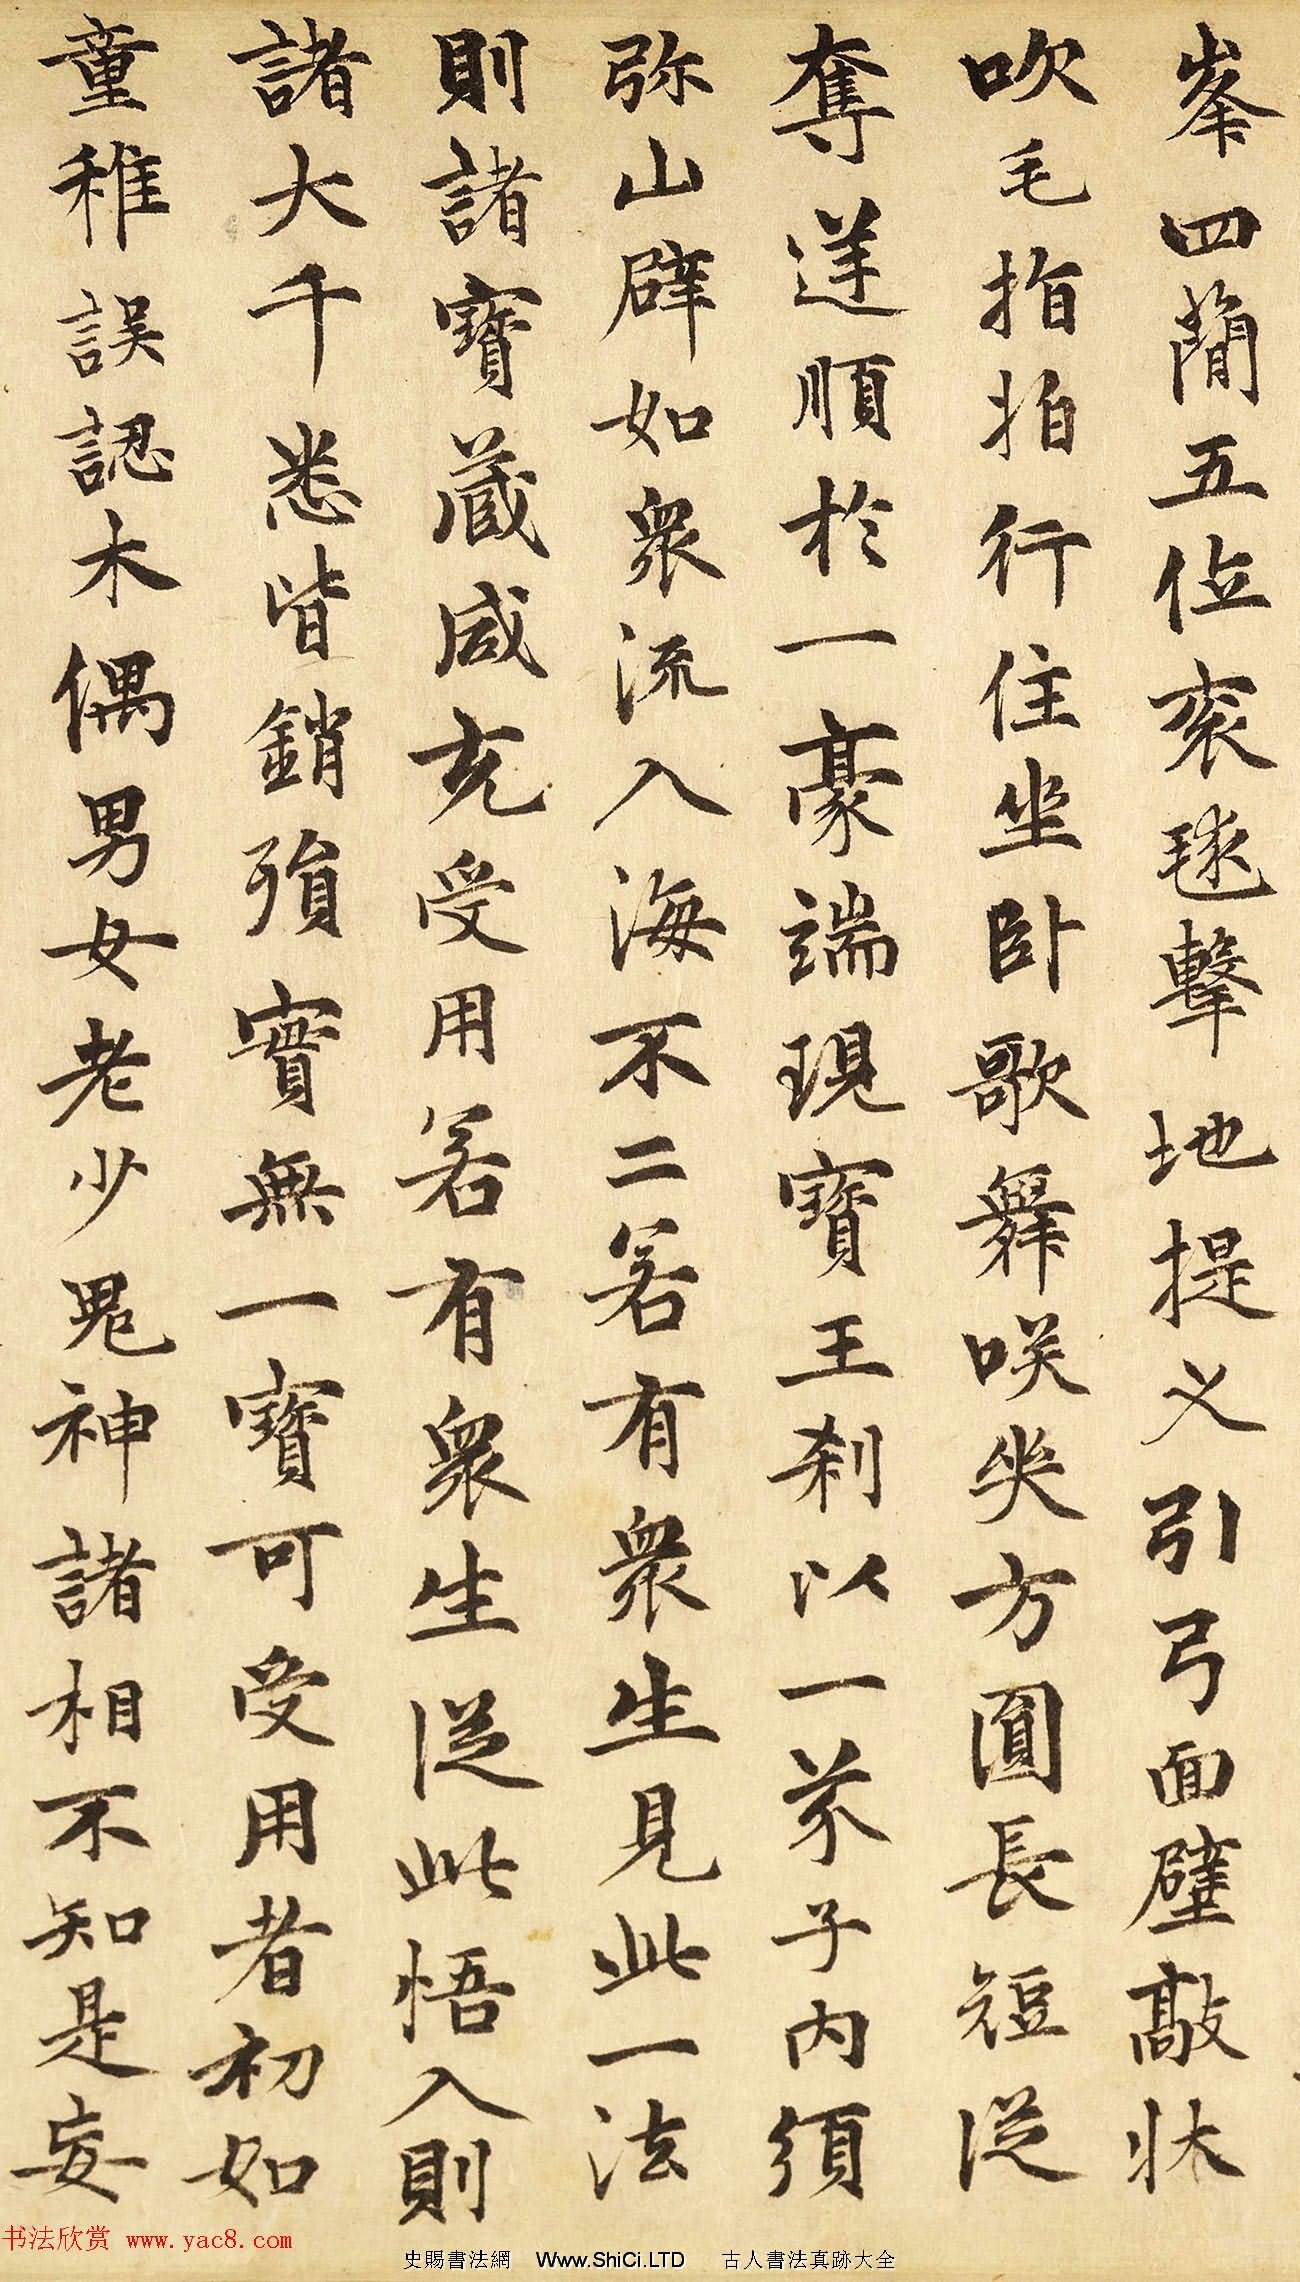 峯四蕳五位衮毬擊地提义引弓面壁敲牀
吹毛指拍行住坐卧歌舞咲哭方圎長短從
奪逆順於一豪端現寳王刹以一芥子内須
弥山辟如衆流入海不二若有衆生見此一法
則諸寳藏咸充受用若有衆生從此悟入則
諸大千悉皆銷殞實無一寳可受用者初如
童稚誤認木偶男女老少鬼神諸相不知是妄
书法欣赏 www.yac8.com
史賜書法網 Www.ShiCi.LTD 古人書法真跡大全